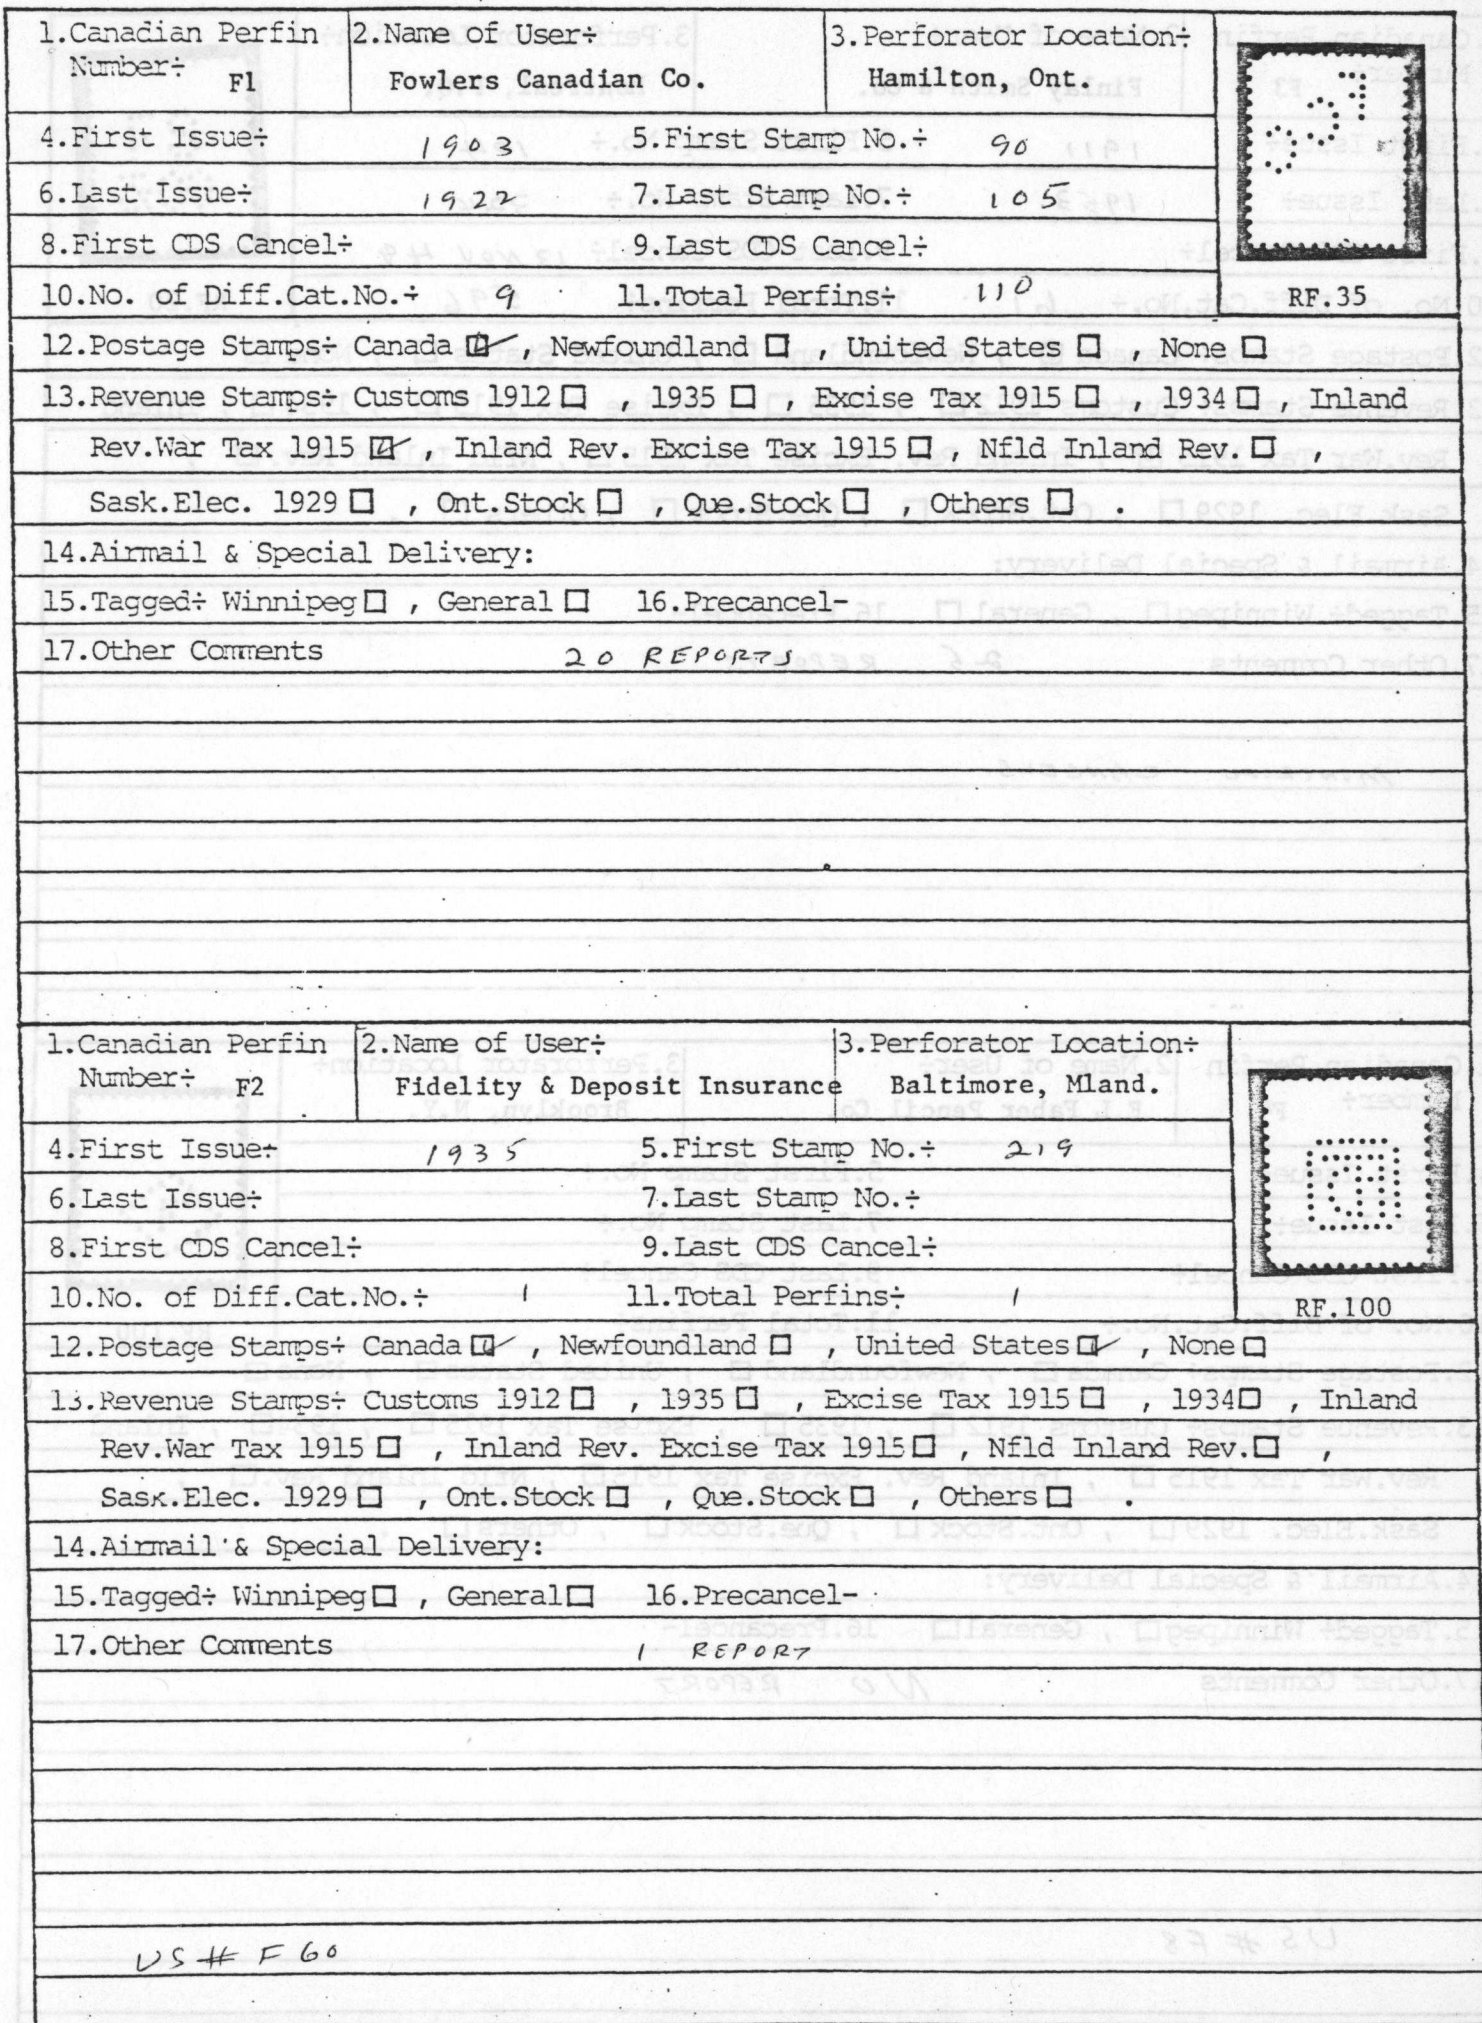 1.Canadian Perfin Number÷ F1
2.Name of User÷ Fowlers Canadian Co.
3.Perforator Location÷ Hamilton, Ont.
4.First Issue÷ 1903 5.First Stamp No.÷ 90
6.Last Issue÷ 1922 7.Last Stamp No.÷ 105
8.First CDS Cancel÷ 9.Last CDS Cancel÷
10.No. of Diff.Cat.No.÷ 9 11.Total Perfins÷ 110
RF.35
12.Postage Stamps÷ Canada ☑, Newfoundland ☐ , United States ☐ None ☐
13.Revenue Stamps÷ Customs 1912 ☐ , 1935 ☐ , Excise Tax 1915 ☐ , 1934 ☐ , Inland
Rev.War Tax 1915 ☑ , Inland Rev. Excise Tax 1915 ☐ , Nfld Inland Rev. ☐ ,
Sask.Elec. 1929 ☐ , Ont.Stock ☐ , Que.Stock ☐ , Others ☐ .
14.Airmail & Special Delivery:
15.Tagged÷ Winnipeg ☐ , General ☐ 16.Precancel-
17.Other Comments 20 REPORTS
1.Canadian Perfin Number÷ F2
2.Name of User÷ Fidelity & Deposit Insurance
3.Perforator Location÷ Baltimore, Mland.
4.First Issue÷ 1935 5.First Stamp No.÷ 219
6.Last Issue÷ 7.Last Stamp No.÷
8.First CDS Cancel÷ 9.Last CDS Cancel÷
10.No. of Diff.Cat.No.÷ 1 11.Total Perfins÷ 1
RF.100
12.Postage Stamps÷ Canada ☑ , Newfoundland ☐ , United States ☑ , None ☐
13.Revenue Stamps÷ Customs 1912 ☐ , 1935 ☐ , Excise Tax 1915 ☐ , 1934 ☐ , Inland
Rev.War Tax 1915 ☐ , Inland Rev. Excise Tax 1915 ☐ , Nfld Inland Rev. ☐ ,
Sask.Elec. 1929 ☐ , Ont.Stock ☐ , Que.Stock ☐ , Others ☐ .
14.Airmail & Special Delivery:
15.Tagged÷ Winnipeg ☐ , General ☐ 16.Precancel-
17.Other Comments 1 REPORT
US # F60